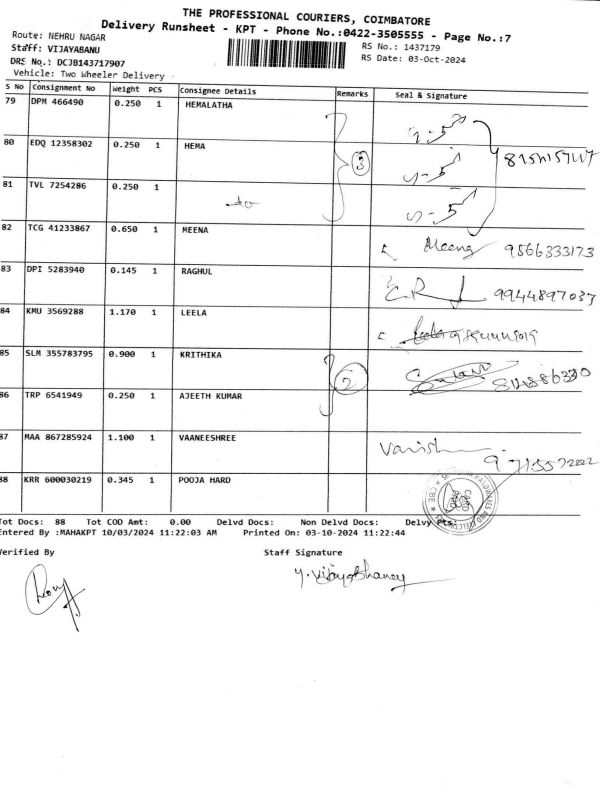 THE PROFESSIONAL COURIERS, COIMBATORE
Delivery Runsheet - KPT - Phone No.:0422-3505555 - Page No.:7
Route: NEHRU NAGAR RS No.: 1437179
Staff: VIJAYABANU RS Date: 03-Oct-2024
DRS No.: DCJB143717907
Vehicle: Two Wheeler Delivery
S No Consignment No Weight PCS Consignee Details Remarks Seal & Signature
79 DPM 466490 0.250 1 HEMALATHA
80 EDQ 12358302 0.250 1 HEMA 3
81 TVL 7254286 0.250 1
82 TCG 41233867 0.650 1 MEENA Meena 9566333173
83 DPI 5283940 0.145 1 RAGHUL 9944897037
84 KMU 3569288 1.170 1 LEELA
85 SLM 355783795 0.900 1 KRITHIKA 2
86 TRP 6541949 0.250 1 AJEETH KUMAR
87 MAA 867285924 1.100 1 VAANEESHREE
88 KRR 600030219 0.345 1 POOJA HARD
Tot Docs: 88 Tot COD Amt: 0.00 Delvd Docs: Non Delvd Docs: Delvy Pts:
Entered By :MAHAKPT 10/03/2024 11:22:03 AM Printed On: 03-10-2024 11:22:44
Verified By Staff Signature